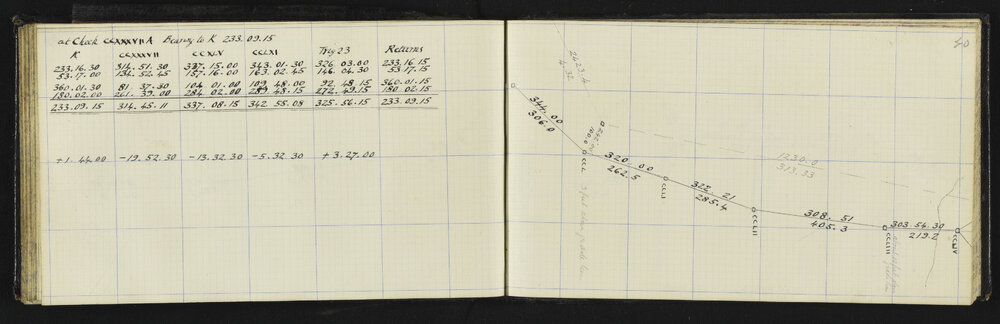 at Check CCXXXVII A Bearing to K 233.09.15
K CCXXXVII CCXLV CCLXI Trig 23 Returns
233.16.30 314.51.30 337.15.00 343.01.30 326 03.00 233.16.15
53.17.00 134.52.45 157.16.00 163.02.45 146.04.30 53.17.15
360.01.30 81.37.30 104 01.00 109 48.00 92 48 15 360.01.15
180.02.00 261.39.00 284 02.00 289 48.15 272.49.15 180 02.15
233.09.15 314.45.11 337.08.15 342 55.08 325.56.15 233.09.15
+1.44.00 -19.52.30 -13.32.30 -5.32.30 +3.27.00
40
344.00
306.0
CCL
320 00
262.5
CCLI
322 21
285.4
CCLII
308.51
405.3
CCLIII
303.54.30
219.2
CCLIV
1230.0
313.33